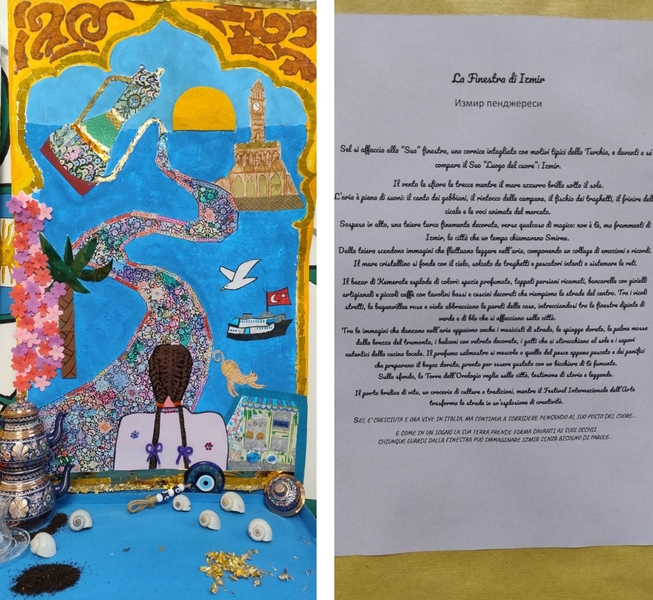 La Finestra di Izmir
Измир пенджереси
Sel si affaccia alla "Sua" finestra, una cornice intagliata con motivi tipici della Turchia, e davanti a sé
compare il Suo "Luogo del cuore": Izmir.
Il vento le sfiora le trecce mentre il mare azzurro brilla sotto il sole.
L'aria è piena di suoni: il canto dei gabbiani, il rintocco delle campane, il fischio dei traghetti, il frinire delle
cicale e le voci animate del mercato.
Sospesa in alto, una teiera turca finemente decorata, versa qualcosa di magico: non è tè, ma frammenti di
Izmir, la città che un tempo chiamavano Smirne.
Dalla teiera scendono immagini che fluttuano leggere nell'aria, componendo un collage di emozioni e ricordi.
Il mare cristallino si fonde con il cielo, solcato da traghetti e pescatori intenti a sistemare le reti.
Il bazar di Kemeralti esplode di colori: spezie profumate, tappeti persiani ricamati, bancarelle con gioielli
artigianali e piccoli caffè con tavolini bassi e cuscini decorati che riempiono le strade del centro. Tra i vicoli
stretti, le buganvillee rosa e viola abbracciano le pareti delle case, intrecciandosi tra le finestre dipinte di
verde e di blu che si affacciano sulla città.
Tra le immagini che danzano nell'aria appaiono anche i musicisti di strada, le spiagge dorate, le palme mosse
dalla brezza del tramonto, i balconi con vetrate decorate, i gatti che si stiracchiano al sole e i sapori
autentici della cucina locale. Il profumo salmastro si mescola a quello del pesce appena pescato e dei panifici
che preparano il boyoz dorato, pronto per essere gustato con un bicchiere di tè fumante.
Sullo sfondo, la Torre dell'Orologio veglia sulla città, testimone di storie e leggende.
Il porto brulica di vita, un crocevia di culture e tradizioni, mentre il Festival Internazionale dell'Arte
trasforma le strade in un'esplosione di creatività.
SEL E' CRESCIUTA E ORA VIVE IN ITALIA, MA CONTINUA A SORRIDERE PENSANDO AL SUO POSTO DEL CUORE...
E COME IN UN SOGNO LA SUA TERRA PRENDE FORMA DAVANTI AI SUOI OCCHI
CHIUNQUE GUARDI DALLA FINESTRA PUÒ IMMAGINARE IZMIR SENZA BISOGNO DI PAROLE...